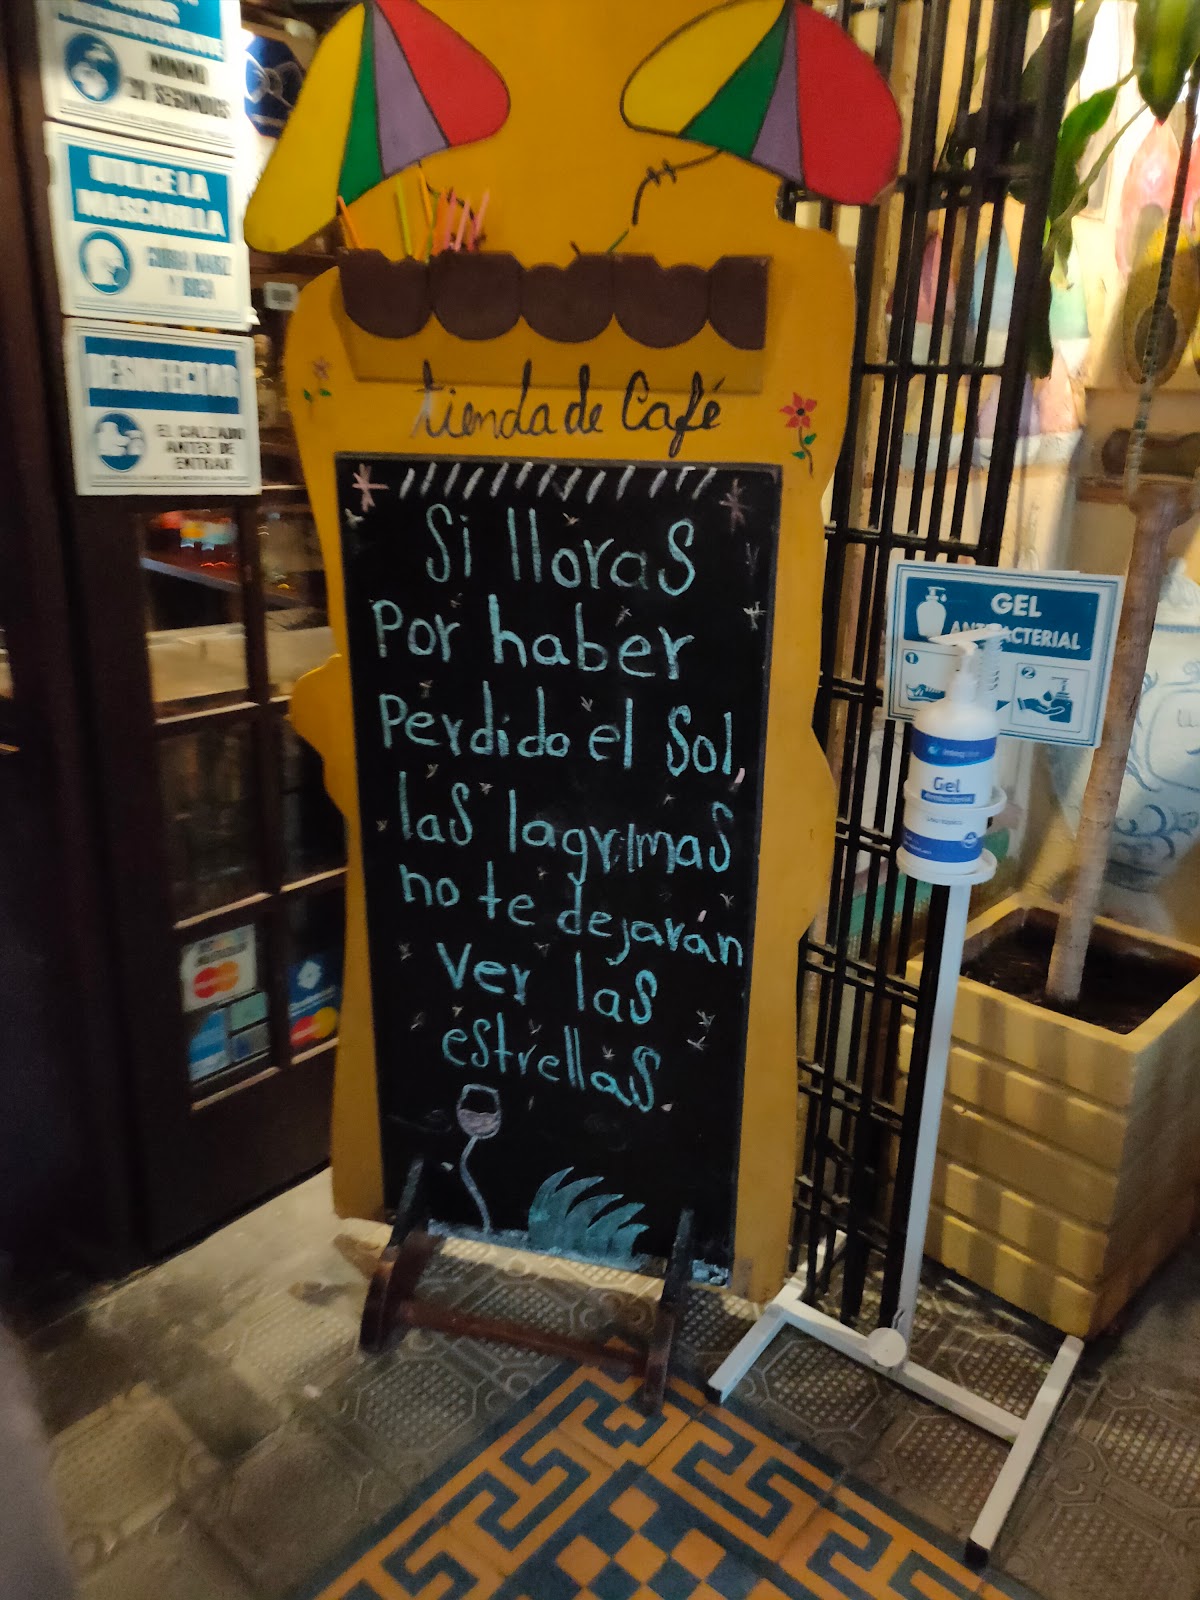 MINIMO
20 SEGUNDOS
UTILICE LA
MASCARILLA
CUBRA NARIZ
Y BOCA
DESINFECTAR
EL CALZADO
ANTES DE
ENTRAR
tienda de Café
Si lloras
Por haber
Perdido el Sol,
las lagrimas
no te dejarán
Ver las
estrellas.
GEL
ANTIBACTERIAL
1
2
Gel
Antibacterial